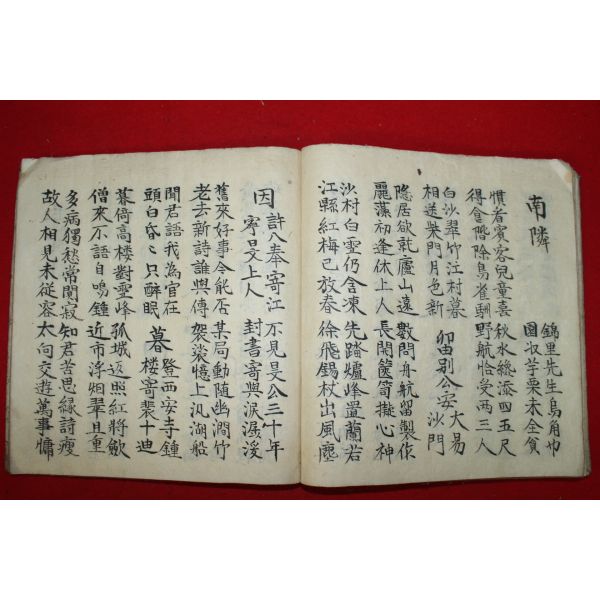 南隣
錦里先生烏角巾
園收芋栗未全貧
慣看賓客兒童喜 秋水纔添四五尺
得食階除鳥雀馴 野航恰受兩三人
白沙翠竹江村暮
相送柴門月色新
留別公安大易沙門
隱居欲就廬山遠 數問舟航留製作
麗藻初逢休上人 長開篋笥擬心神
沙村白雪仍含凍 先踏爐峰置蘭若
江縣紅梅已放春 徐飛錫杖出風塵
因許八奉寄江寧旻上人
不見旻公三十年
封書寄與淚潺湲
舊來好事今能否 某局動隨幽澗竹
老去新詩誰與傳 袈裟憶上汎湖船
聞君話我為官在
頭白昏々只醉眠
暮登西安寺鐘樓寄裴十迪
暮倚高樓對雪峰 孤城返照紅將歛
僧來不語自鳴鍾 近市浮烟翠且重
多病獨愁常闃寂 知君苦思緣詩瘦
故人相見未從容 太向交遊萬事慵